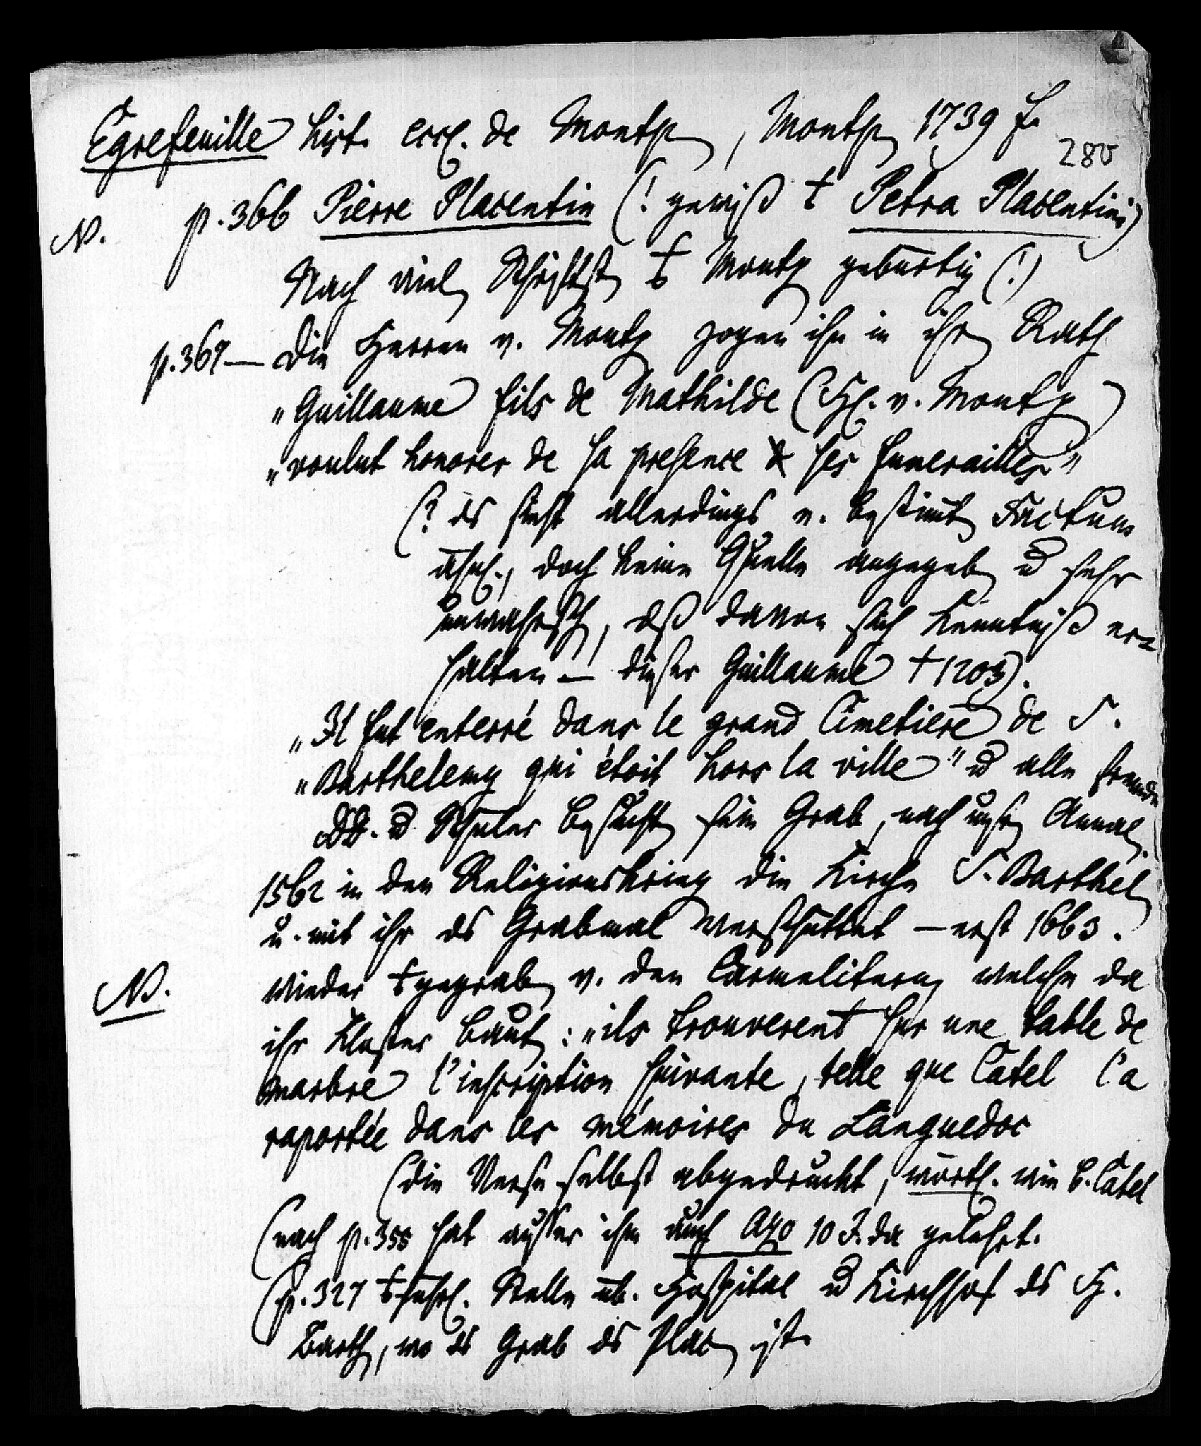 Egrefeuille hist. eccl. de Montp, Montp 1739 f.
280
N. p. 366 Pierre Placentin (! gewiß † Petra Placentini)
Nach viel Schriftst Montp gebürtig (!)
p. 367 — Die Herren v. Montp zogen ihn in ihr Rath
„Guillaume fils de Mathilde (H. v. Montp)
„voulut honorer de sa presence ses funerailles"
(? es sieht allerdings e. bestimt Factum
ähnl., doch keine Quelle angegeb u sehr
unwahrsch, dß davon sich Kenntniß er=
halten — dieser Guillaume † 1203).
„Il fut enterré dans le grand Cimetiere de S.
„Barthelemy qui étoit hors la ville" u alle fremde
DD. u Schüler besucht sein Grab, nach uns Annal.
1562 in den Religionskrieg die Kirche S. Barthel
u. mit ihr ds Grabmal verschüttet — erst 1663.
NB. wieder gegrab v. den Carmelitern welche da
ihr Kloster baut: „ils trouverent sur une table de
marbre l'inscription suivante, telle que Catel l'a
raportée dans les mémoires du Languedoc
(die Verse selbst abgedruckt, wörtl. wie b. Catel
(nach p. 355 hat ausser ihm auch Azo 10 J. da gelehrt.
(p. 327 Stelle üb. Hospital u Kirchhof ds H.
Barth, wo ds Grab ds Plac ist.